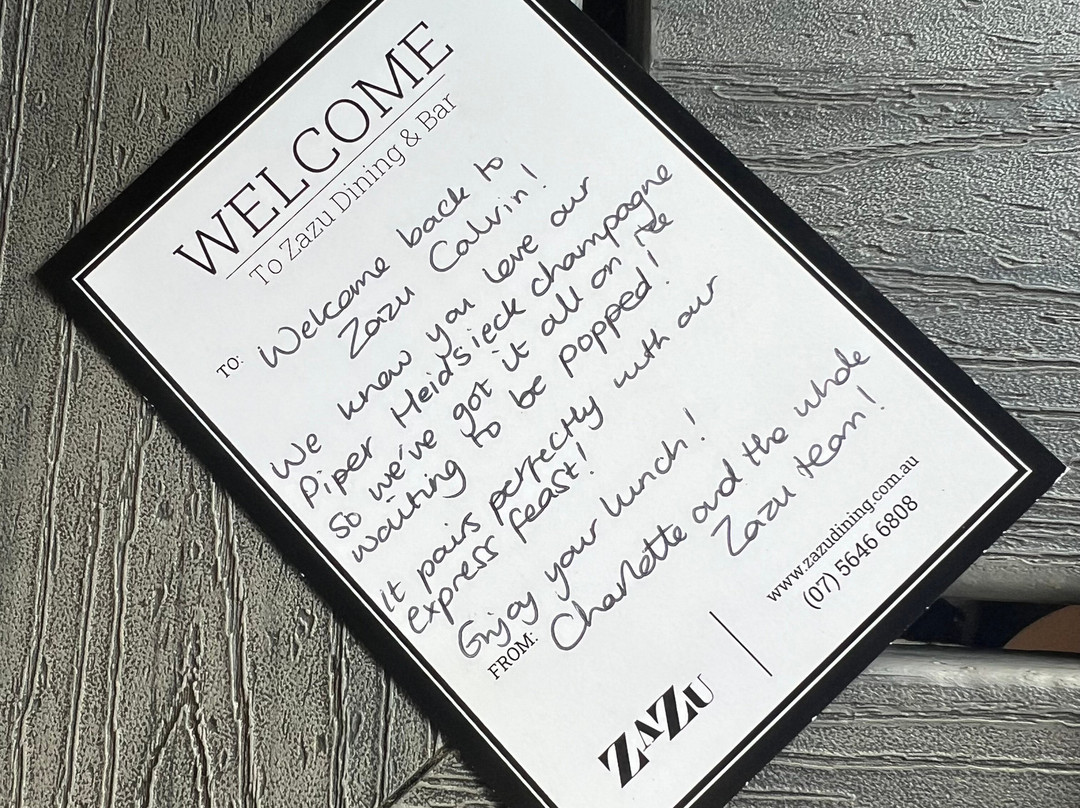 WELCOME
To Zazu Dining & Bar
TO: Welcome back to
Zazu Calvin!
We know you love our
Piper Heidsieck champagne
so we've got it all on ice
waiting to be popped!
It pairs perfectly with our
express feast!
Enjoy your lunch!
FROM: Charlotte and the whole
Zazu team!
www.zazudining.com.au
(07) 5646 6808
ZAZU